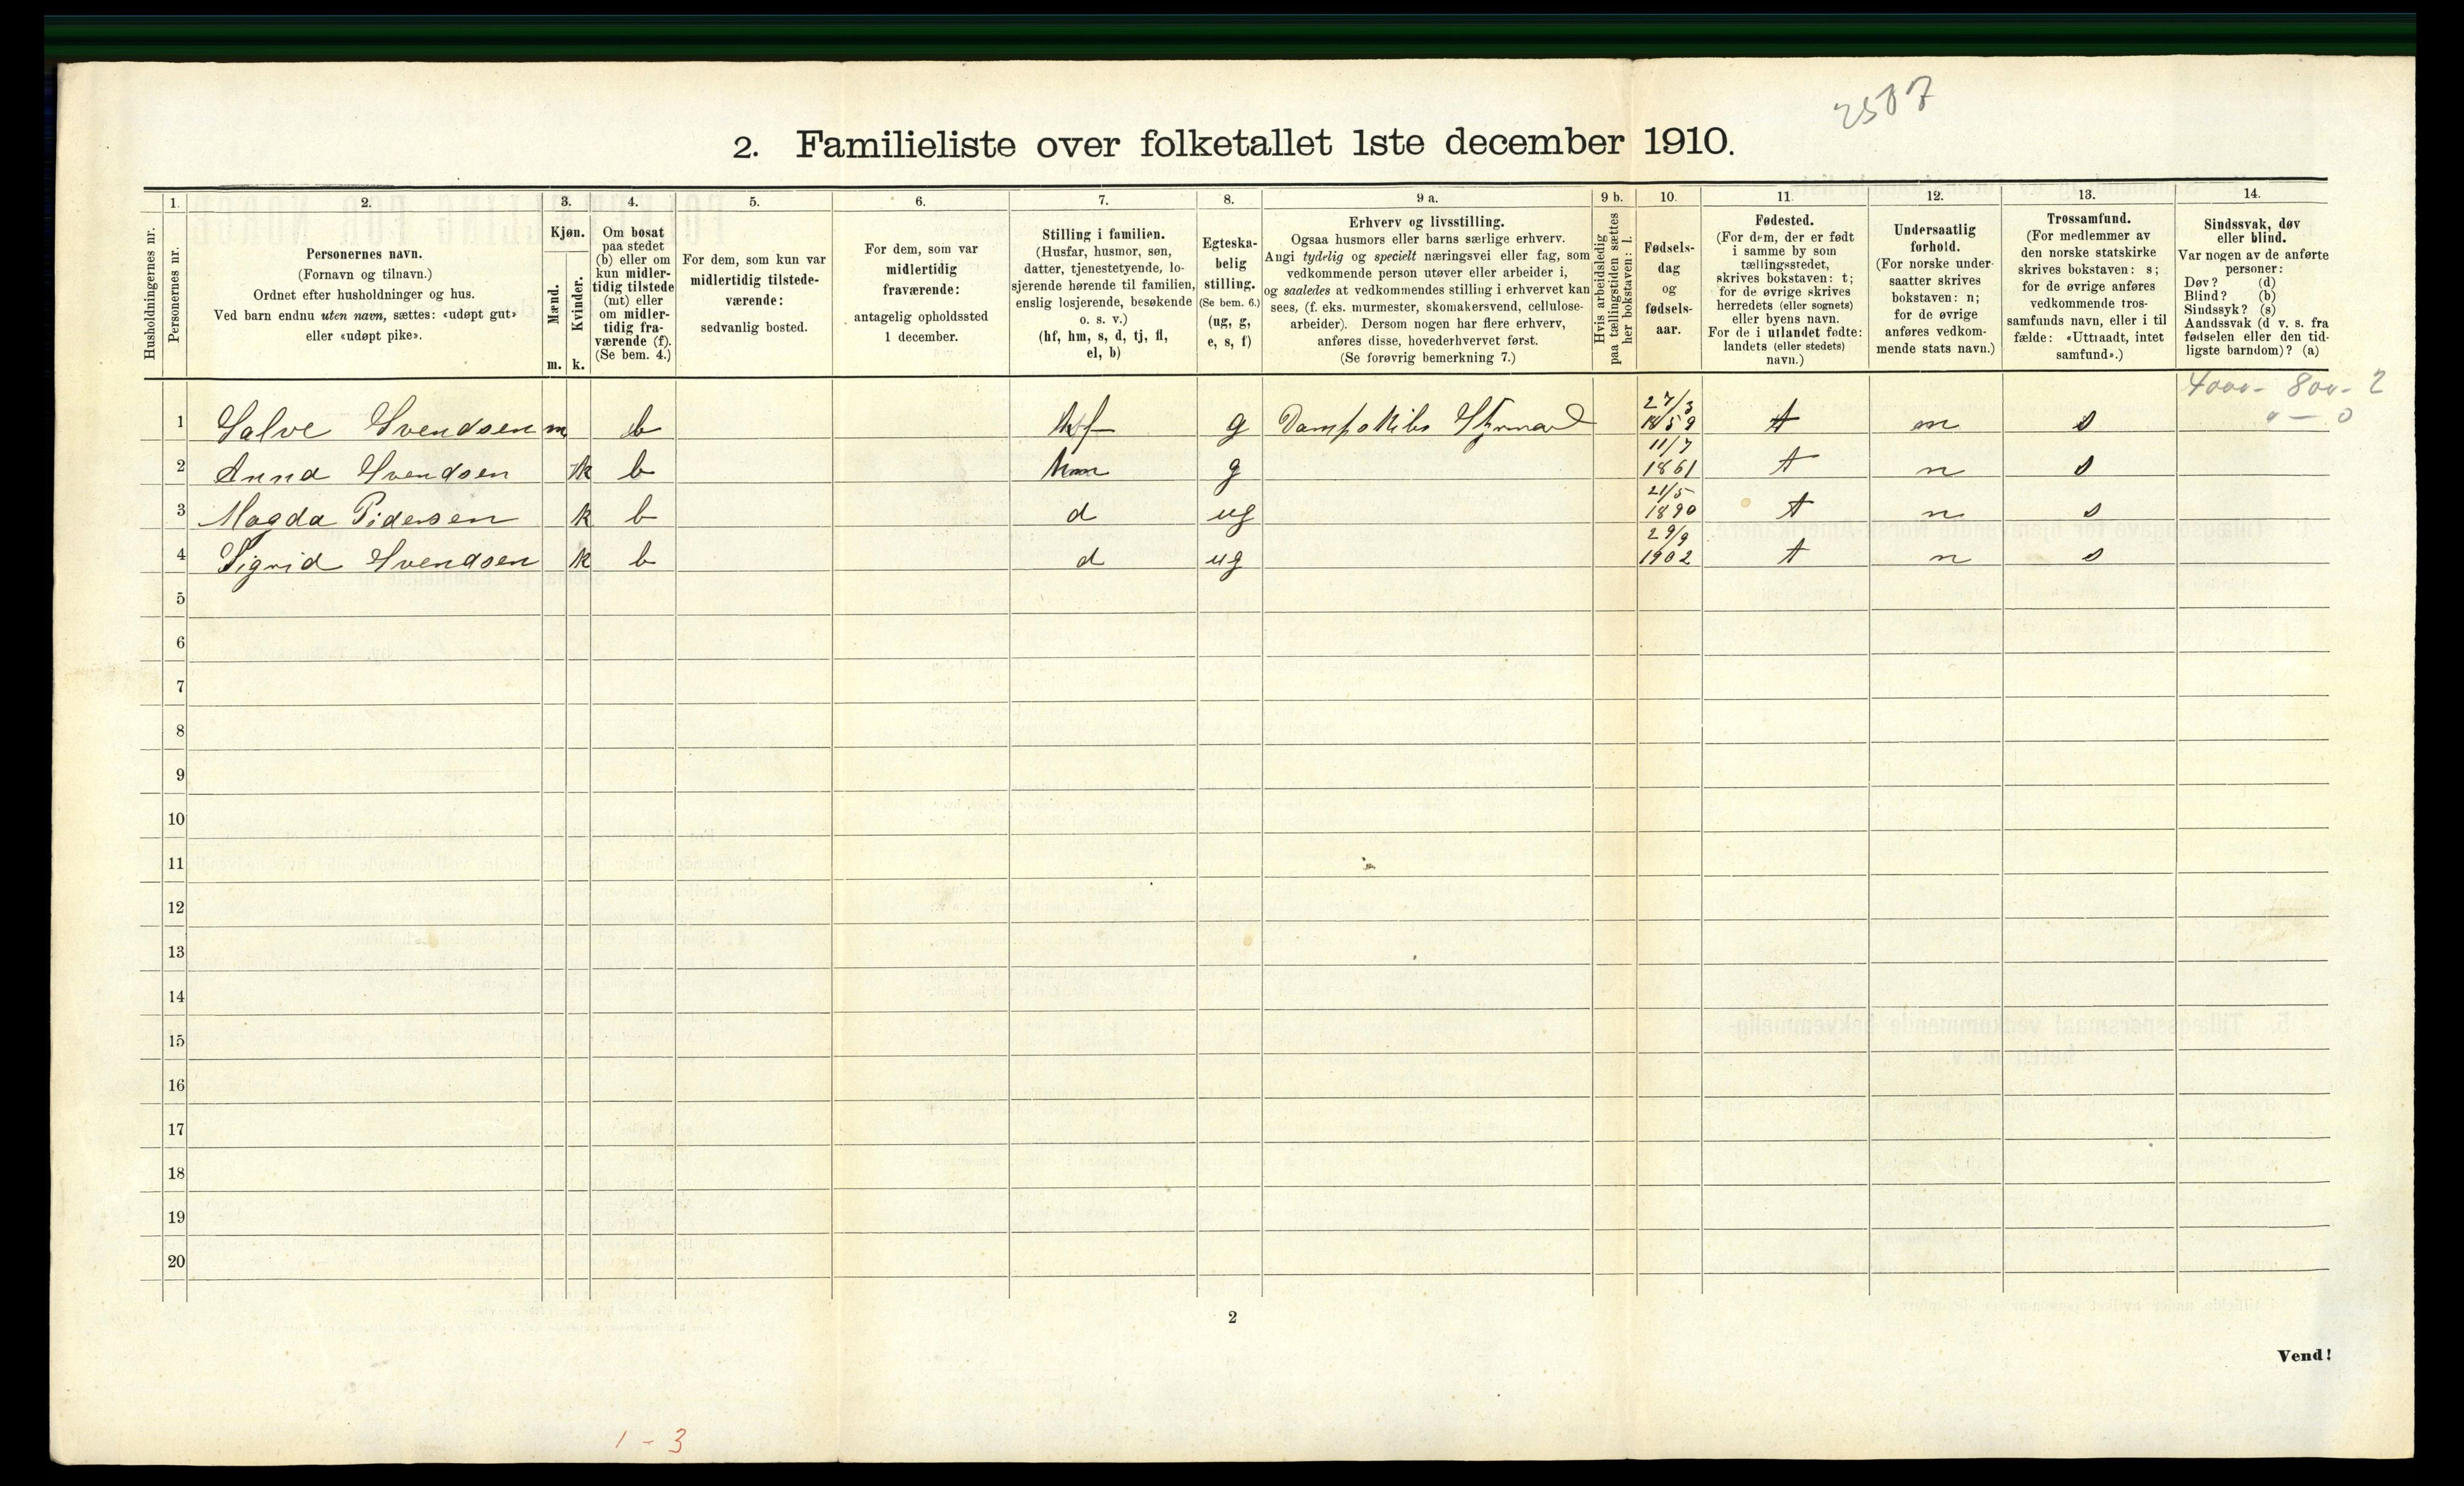 2507
2. Familieliste over folketallet 1ste december 1910.
Husholdningernes nr.
1.
Personernes nr.
2.
Personernes navn.
(Fornavn og tilnavn.)
Ordnet efter husholdninger og hus.
Ved barn endnu uten navn, sættes: «udøpt gut»
eller «udøpt pike».
3.
Kjøn.
Mænd.
Kvinder.
m. k.
4.
Om bosat
paa stedet
(b) eller om
kun midler-
tidig tilstede
(mt) eller
om midler-
tidig fra-
værende (f).
(Se bem. 4.)
5.
For dem, som kun var
midlertidig tilstede-
værende:
sedvanlig bosted.
6.
For dem, som var
midlertidig
fraværende:
antagelig opholdssted
1 december.
7.
Stilling i familien.
(Husfar, husmor, søn,
datter, tjenestetyende, lo-
sjerende hørende til familien,
enslig losjerende, besøkende
o. s. v.)
(hf, hm, s, d, tj, fl,
el, b)
8.
Egteska-
belig
stilling.
(Se bem. 6.)
(ug, g,
e, s, f)
9 a.
Erhverv og livsstilling.
Ogsaa husmors eller barns særlige erhverv.
Angi tydelig og specielt næringsvei eller fag, som
vedkommende person utøver eller arbeider i,
og saaledes at vedkommendes stilling i erhvervet kan
sees, (f. eks. murmester, skomakersvend, cellulose-
arbeider). Dersom nogen har flere erhverv,
anføres disse, hovederhvervet først.
(Se forøvrig bemerkning 7.)
9 b.
Hvis arbeidsledig
paa tællingstiden sættes
her bokstaven: l.
10.
Fødsels-
dag
og
fødsels-
aar.
11.
Fødested.
(For dem, der er født
i samme by som
tællingsstedet,
skrives bokstaven: t;
for de øvrige skrives
herredets (eller sognets)
eller byens navn.
For de i utlandet fødte:
landets (eller stedets)
navn.)
12.
Undersaatlig
forhold.
(For norske under-
saatter skrives
bokstaven: n;
for de øvrige
anføres vedkom-
mende stats navn.)
13.
Trossamfund.
(For medlemmer av
den norske statskirke
skrives bokstaven: s;
for de øvrige anføres
vedkommende tros-
samfunds navn, eller i til
fælde: «Uttraadt, intet
samfund».)
14.
Sindssvak, døv
eller blind.
Var nogen av de anførte
personer:
Døv? (d)
Blind? (b)
Sindssyk? (s)
Aandssvak (d v. s. fra
fødselen eller den tid-
ligste barndom)? (a)
4000- 800- 2
" — 0
1 Salve Svendsen m b hf g Dampskibs Styrmand 27/3 1859 t n s
2 Anna Svendsen k b hm g 11/7 1861 t n s
3 Magda Pedersen k b d ug 21/5 1890 t n s
4 Sigrid Svendsen k b d ug 29/9 1902 t n s
5
6
7
8
9
10
11
12
13
14
15
16
17
18
19
20
2
Vend!
1 - 3